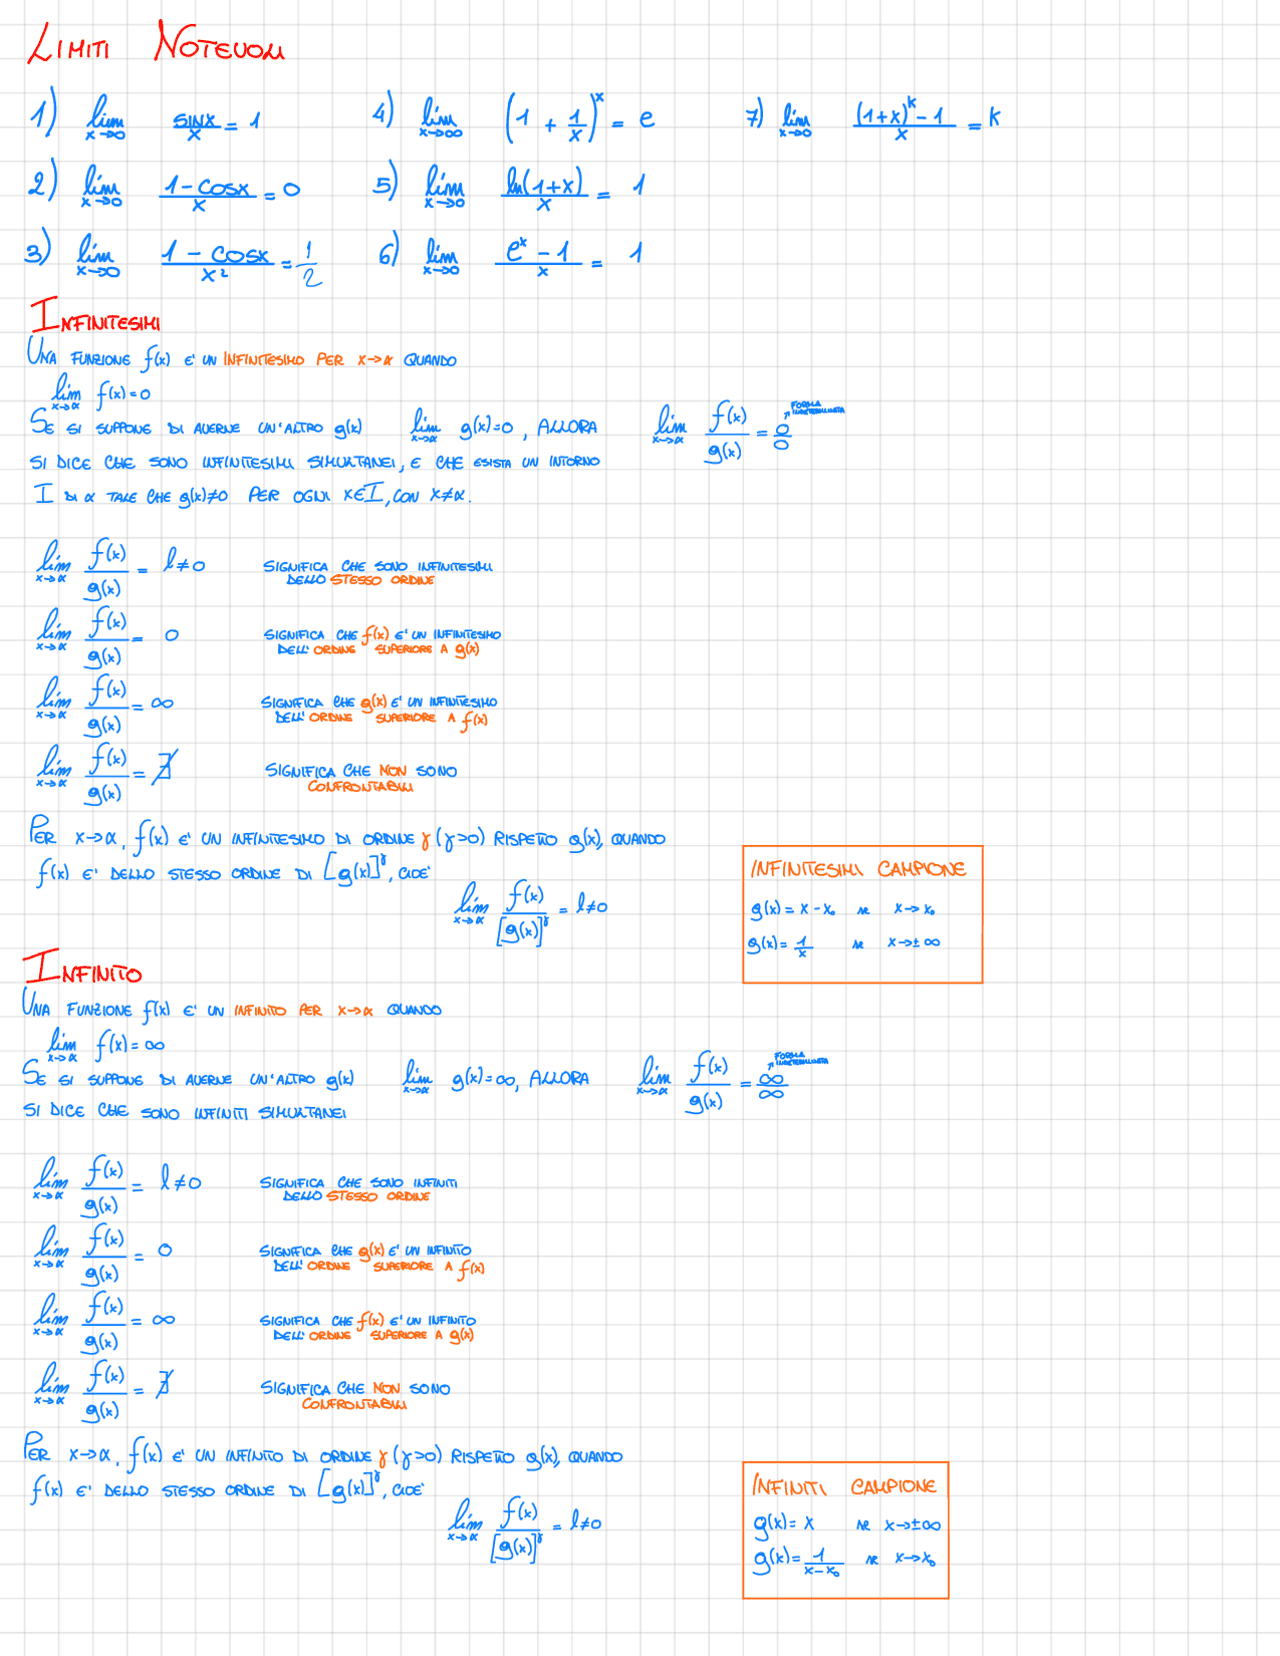 LIMITI NOTEVOLI
1) lim x→0 sinx/x = 1
4) lim x→∞ (1 + 1/x)^x = e
7) lim x→0 ((1+x)^k - 1)/x = k
2) lim x→0 (1-cosx)/x = 0
5) lim x→0 ln(1+x)/x = 1
3) lim x→0 (1-cosx)/x² = 1/2
6) lim x→0 (e^x - 1)/x = 1
INFINITESIMI
UNA FUNZIONE f(x) E' UN INFINITESIMO PER x→α QUANDO
lim x→α f(x)=0
SE SI SUPPONE DI AVERNE UN'ALTRO g(x) lim x→α g(x)=0, ALLORA lim x→α f(x)/g(x) = 0/0 FORMA INDETERMINATA
SI DICE CHE SONO INFINITESIMI SIMULTANEI, E CHE ESISTA UN INTORNO
I DI α TALE CHE g(x)≠0 PER OGNI x∈I, CON x≠α.
lim x→α f(x)/g(x) = l≠0 SIGNIFICA CHE SONO INFINITESIMI
DELLO STESSO ORDINE
lim x→α f(x)/g(x) = 0 SIGNIFICA CHE f(x) E' UN INFINITESIMO
DELL' ORDINE SUPERIORE A g(x)
lim x→α f(x)/g(x) = ∞ SIGNIFICA CHE g(x) E' UN INFINITESIMO
DELL' ORDINE SUPERIORE A f(x)
lim x→α f(x)/g(x) = ∄ SIGNIFICA CHE NON SONO
CONFRONTABILI
PER x→α, f(x) E' UN INFINITESIMO DI ORDINE γ (γ>0) RISPETTO g(x), QUANDO
f(x) E' DELLO STESSO ORDINE DI [g(x)]^γ, CIOE'
lim x→α f(x)/[g(x)]^γ = l≠0
INFINITESIMI CAMPIONE
g(x) = x-x₀ se x→x₀
g(x) = 1/x se x→±∞
INFINITO
UNA FUNZIONE f(x) E' UN INFINITO PER x→α QUANDO
lim x→α f(x)=∞
SE SI SUPPONE DI AVERNE UN'ALTRO g(x) lim x→α g(x)=∞, ALLORA lim x→α f(x)/g(x) = ∞/∞ FORMA INDETERMINATA
SI DICE CHE SONO INFINITI SIMULTANEI
lim x→α f(x)/g(x) = l≠0 SIGNIFICA CHE SONO INFINITI
DELLO STESSO ORDINE
lim x→α f(x)/g(x) = 0 SIGNIFICA CHE g(x) E' UN INFINITO
DELL' ORDINE SUPERIORE A f(x)
lim x→α f(x)/g(x) = ∞ SIGNIFICA CHE f(x) E' UN INFINITO
DELL' ORDINE SUPERIORE A g(x)
lim x→α f(x)/g(x) = ∄ SIGNIFICA CHE NON SONO
CONFRONTABILI
PER x→α, f(x) E' UN INFINITO DI ORDINE γ (γ>0) RISPETTO g(x), QUANDO
f(x) E' DELLO STESSO ORDINE DI [g(x)]^γ, CIOE'
lim x→α f(x)/[g(x)]^γ = l≠0
INFINITI CAMPIONE
g(x) = x se x→±∞
g(x) = 1/(x-x₀) se x→x₀